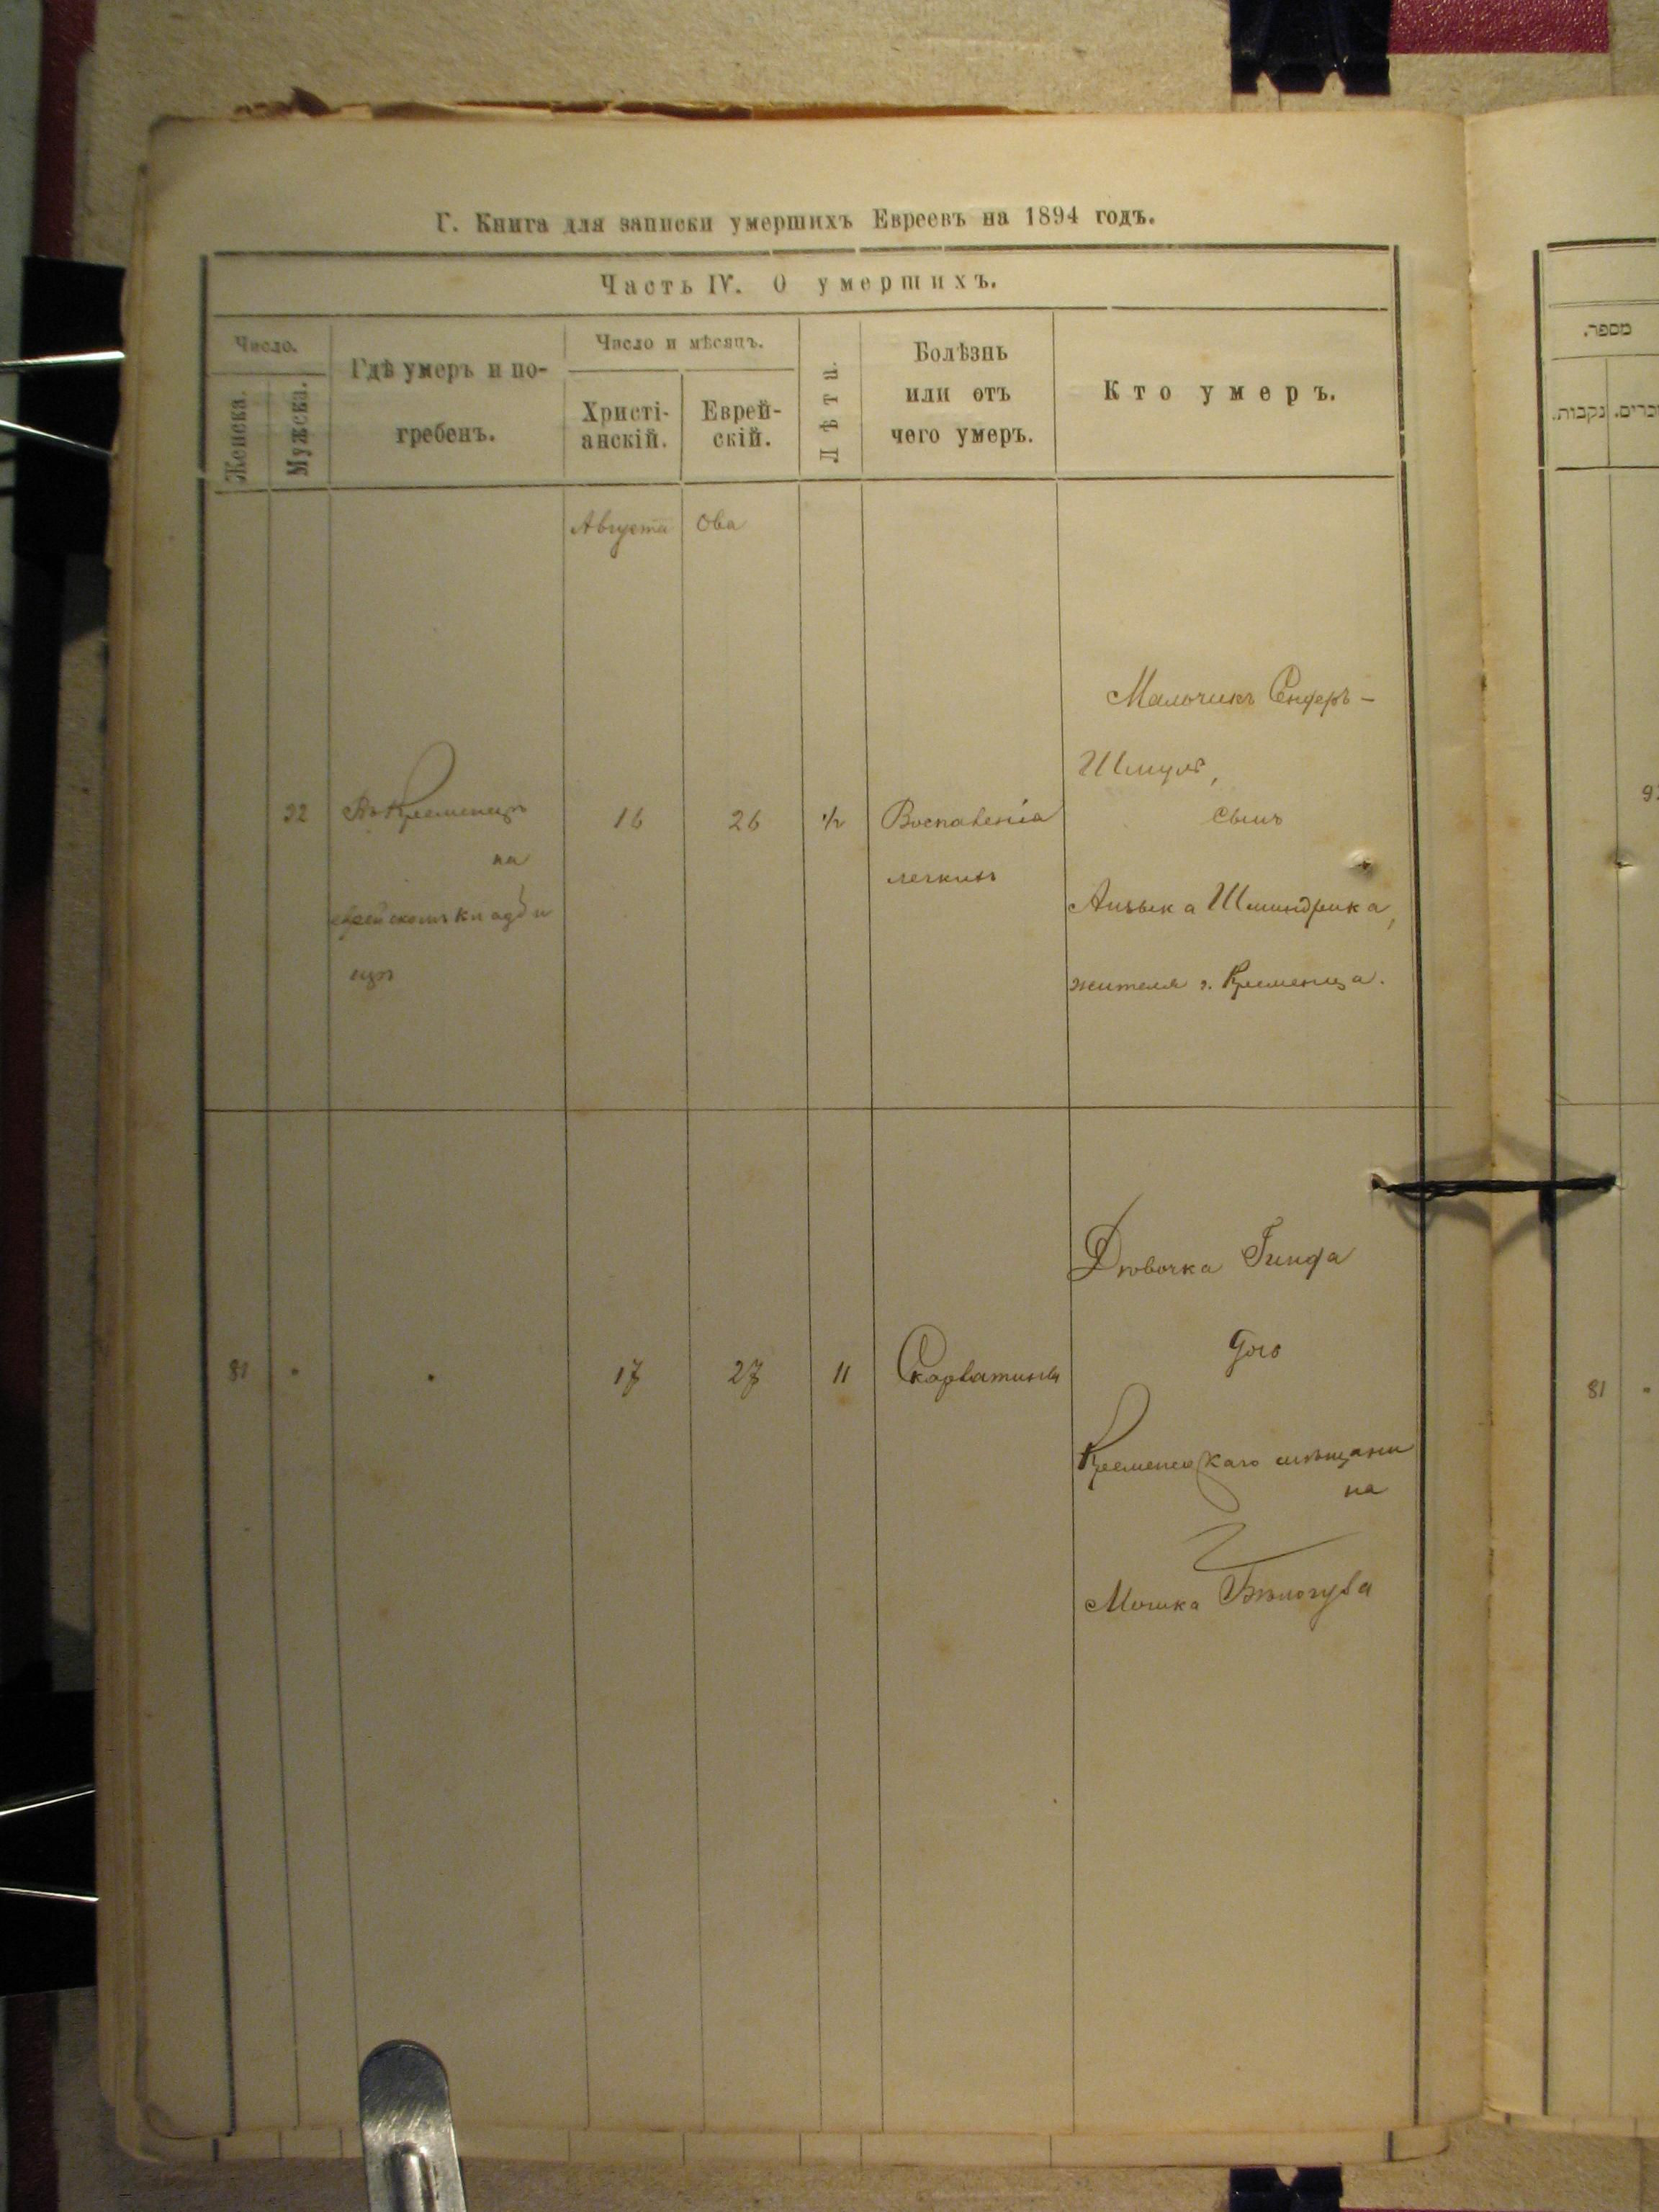 Г. Книга для записки умершихъ Евреевъ на 1894 годъ.
Часть IV. О умершихъ.
Число.
Женска.
Мужска.
Гдѣ умеръ и по-
гребенъ.
Число и мѣсяцъ.
Христі-
анскій.
Еврей-
скій.
Лѣта.
Болѣзнь
или отъ
чего умеръ.
Кто умеръ.
מספר.
נקבות.
Августа Ова
92 Въ Кременцѣ 16 26 1/2 Воспаленія
на
еврейскомъ кладби
щѣ
легкихъ
Мальчикъ Сендеръ-
Шмуль,
сынъ
Айзыка Шминдрика,
жителя г. Кременца.
81 " " 17 27 11 Скарлатины
Дѣвочка Гинда
дочь
Кременецкаго мѣщани
на
Мошка Бѣлогуба
81 "